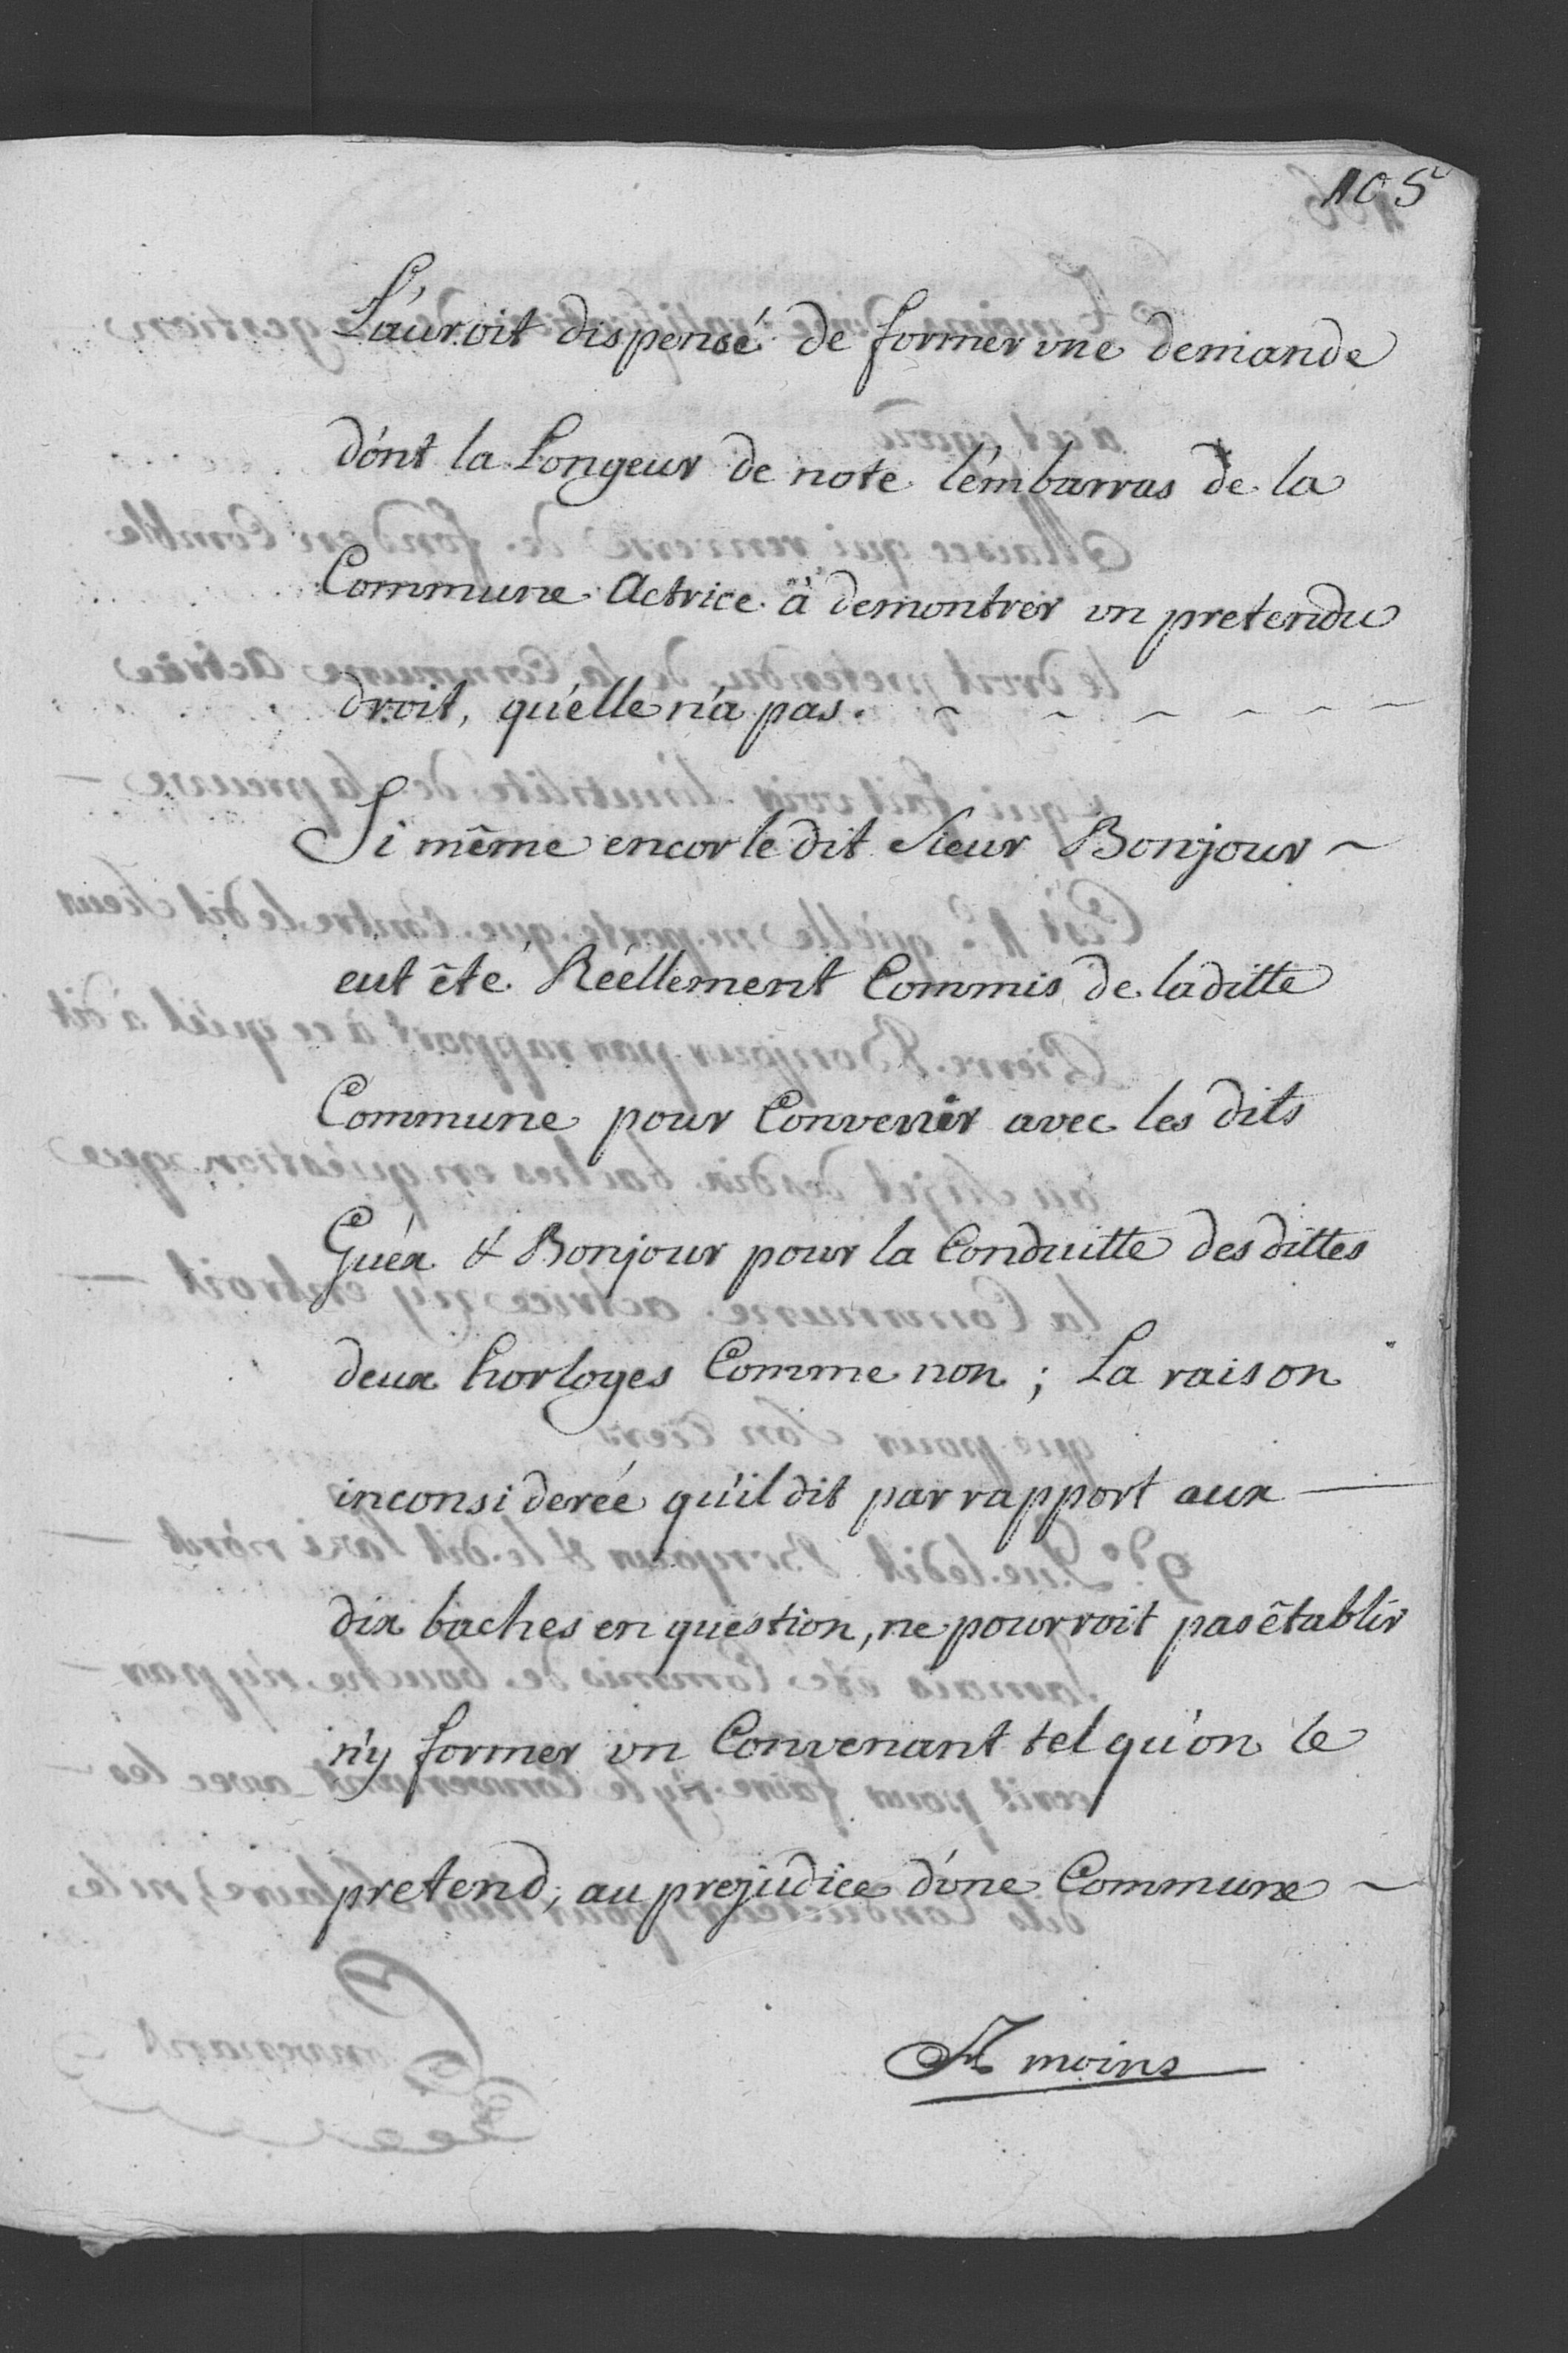 105
L'auroit dispensé de former une demande
dónt la Longeur de note l'émbarras de la
Commune Actrice à demontrer un pretendu
droit, qu'elle n'a pas. ~ ~ ~ ~ ~ ~
Si même encor le dit Sieur Bonjour ~
eut êté Réellement Commis de laditte
Commune pour Convenir avec les dits
Guéx & Bonjour pour la Conduitte des dittes
deux horloges Comme non ; La raison
inconsiderée qu'il dit par rapport aux —
dix baches en question, ne pourroit pas êtablir
n'y former un Convenant tel qu'on le
pretend, au prejudice d'une Commune ~
A moins